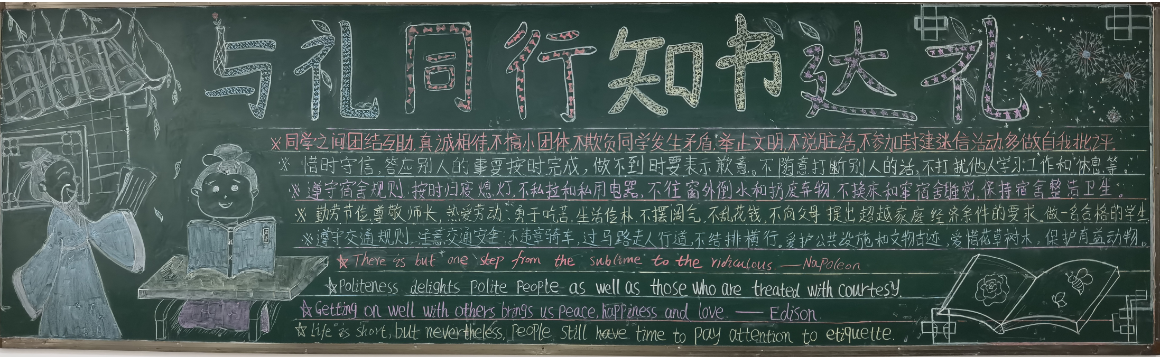 与礼同行知书达礼
※同学之间团结互助,真诚相待,不搞小团体不欺负同学发生矛盾,举止文明,不说脏话,不参加封建迷信活动,多做自我批评
※惜时守信,答应别人的事要按时完成,做不到时要表示歉意。不随意打断别人的话,不打扰他人学习工作和休息等。
※遵守宿舍规则,按时归寝熄灯,不私拉和私用电器,不往窗外倒水和扔废弃物,不,保持宿舍整洁卫生
※勤劳节俭尊敬师长,热爱劳动,勇于吃苦,生活俭朴不摆阔气,不乱花钱,不向父母提出超越家庭经济条件的要求,做一名合格的学生
※遵守交通规则,注意交通安全,不违章骑车,过马路走人行道,不结排横行。爱护公共设施和文物古迹,爱惜花草树木,保护有益动物。
☆There is but one step from the sublime to the ridiculous —Napoleon
☆Politeness delights polite people as well as those who are treated with courtesy
☆Getting on well with others brings us peace, happiness and love. — Edison
☆Life is short, but nevertheless, people still have time to pay attention to etiquette.